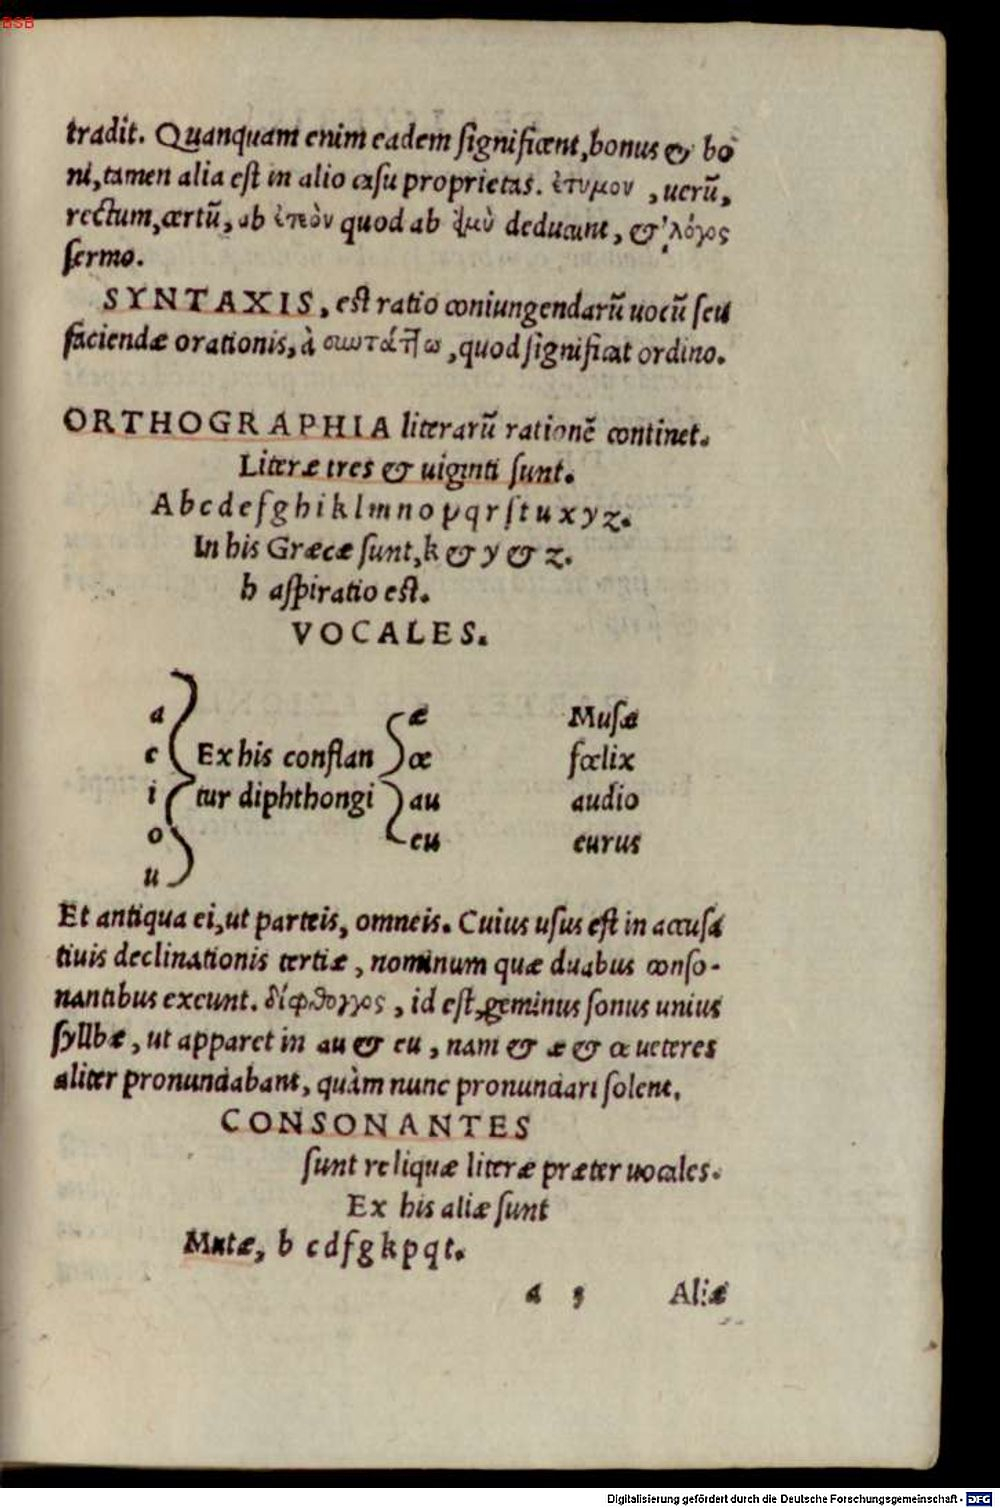 BSB
tradit. Quanquam enim eadem ſignificent, bonus & bo
ni, tamen alia eſt in alio caſu proprietas. ἐτυμον, uerũ,
rectum, certũ, ab ἐτεὸν quod ab deducunt, & λόγος
ſermo.
SYNTAXIS, eſt ratio coniungendarũ uocũ ſeu
faciendæ orationis, à συντάττω, quod ſignificat ordino.
ORTHOGRAPHIA literarũ rationẽ continet.
Literæ tres & uiginti ſunt.
A b c d e f g h i k l m n o p q r ſ t u x y z.
In his Græcæ ſunt, k & y & z.
h aſpiratio eſt.
VOCALES.
a æ Muſæ
e Ex his conflan œ fœlix
i tur diphthongi au audio
o eu eurus
u
Et antiqua ei, ut parteis, omneis. Cuius uſus eſt in accuſa
tiuis declinationis tertiæ, nominum quæ duabus conſo-
nantibus exeunt. δίφθογγος, id eſt, geminus ſonus unius
ſyllbæ, ut apparet in au & eu, nam & æ & œ ueteres
aliter pronunciabant, quàm nunc pronunciari ſolent.
CONSONANTES
ſunt reliquæ literæ præter uocales.
Ex his aliæ ſunt
Mutæ, b c d f g k p q t.
a 3 Aliæ
Digitalisierung gefördert durch die Deutsche Forschungsgemeinschaft - DFG